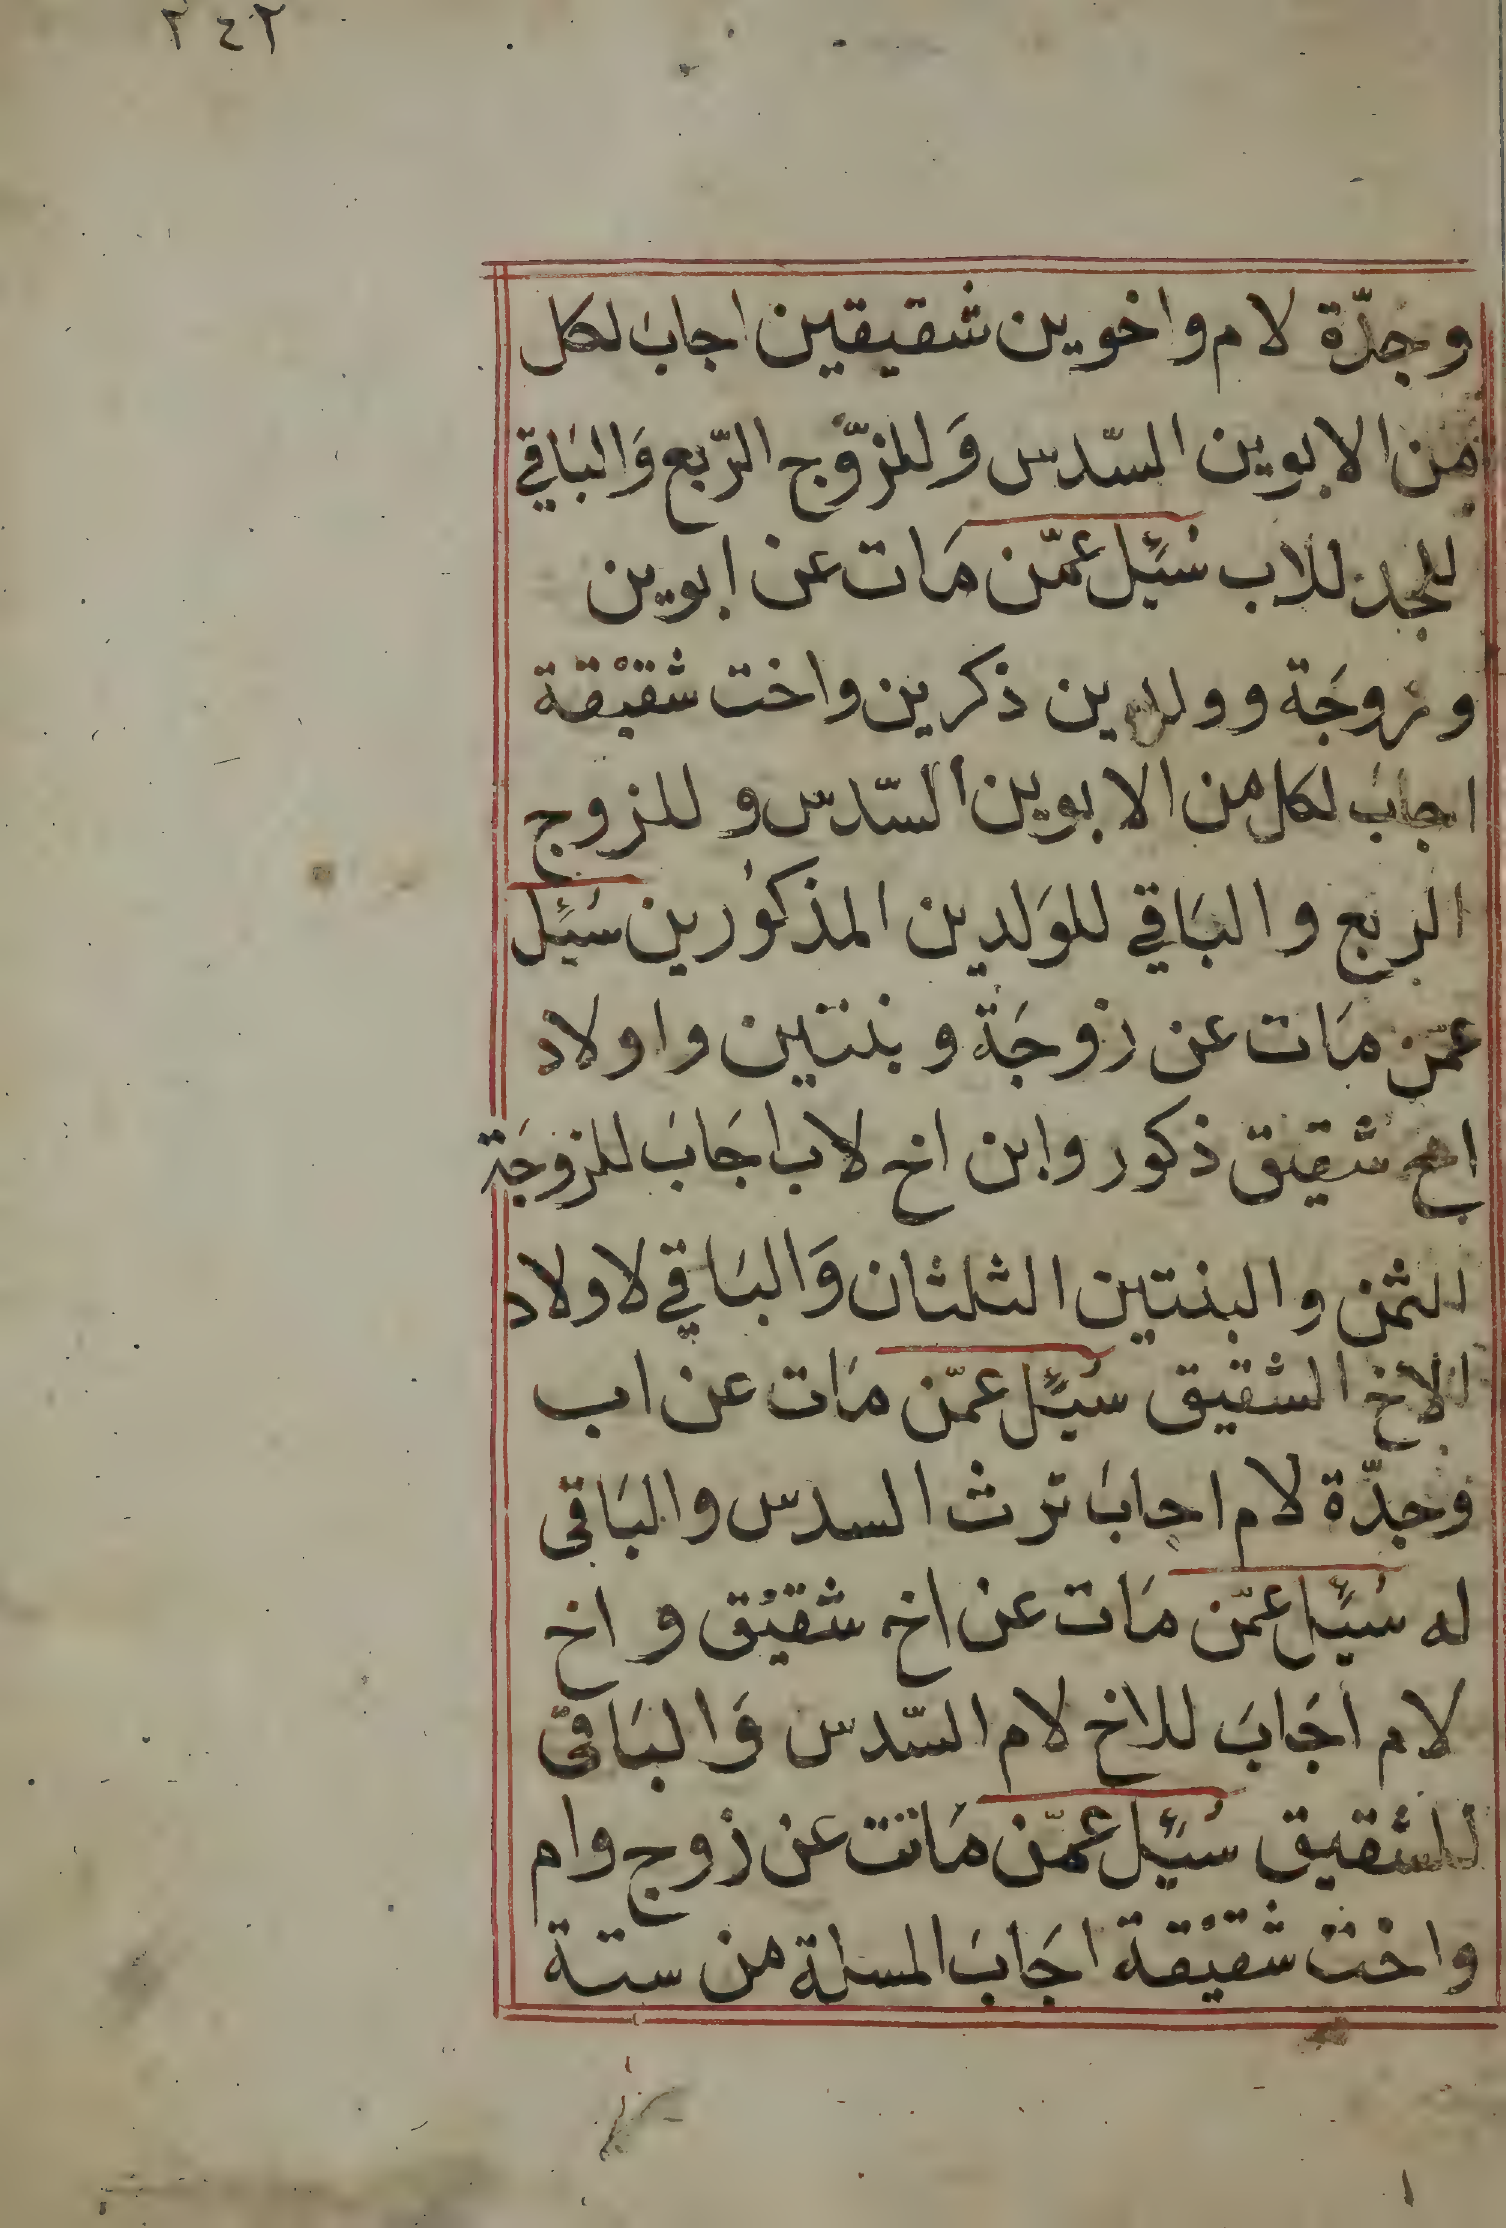 ٢٤٢
وجدّة لام واخوين شقيقين اجابَ لكل
من الابوين السّدس وَللزّوج الرّبع وَالبَاقي
للجد للاب سُئِل عمّن مَات عن ابوين
وزوجَة وولدين ذكرين واخت شقيْقة
اجابَ لكل من الابوين السّدس وللزوج
الربع والبَاقي للوَلدين المذكوُرين سُئِل
عمّن مَات عن زوجَة وبنتين واولاد
اخ شقيق ذكور وابن اخ لاب اجَابَ للزوجَة
الثمن والبنتين الثلثان وَالبَاقي لاولاد
الاخ الشقيق سُئِل عمّن مَات عن اب
وجدّة لام اجابَ ترث السدس والبَاقى
له سُئِل عمّن مَات عن اخ شقيْق واخ
لام اجَابَ للاخ لام السّدس وَالبَاقى
للشقيق سُئِل عمّن مَاتت عن زوج وام
واخت شقيْقة اجَابَ المسلة من ستة